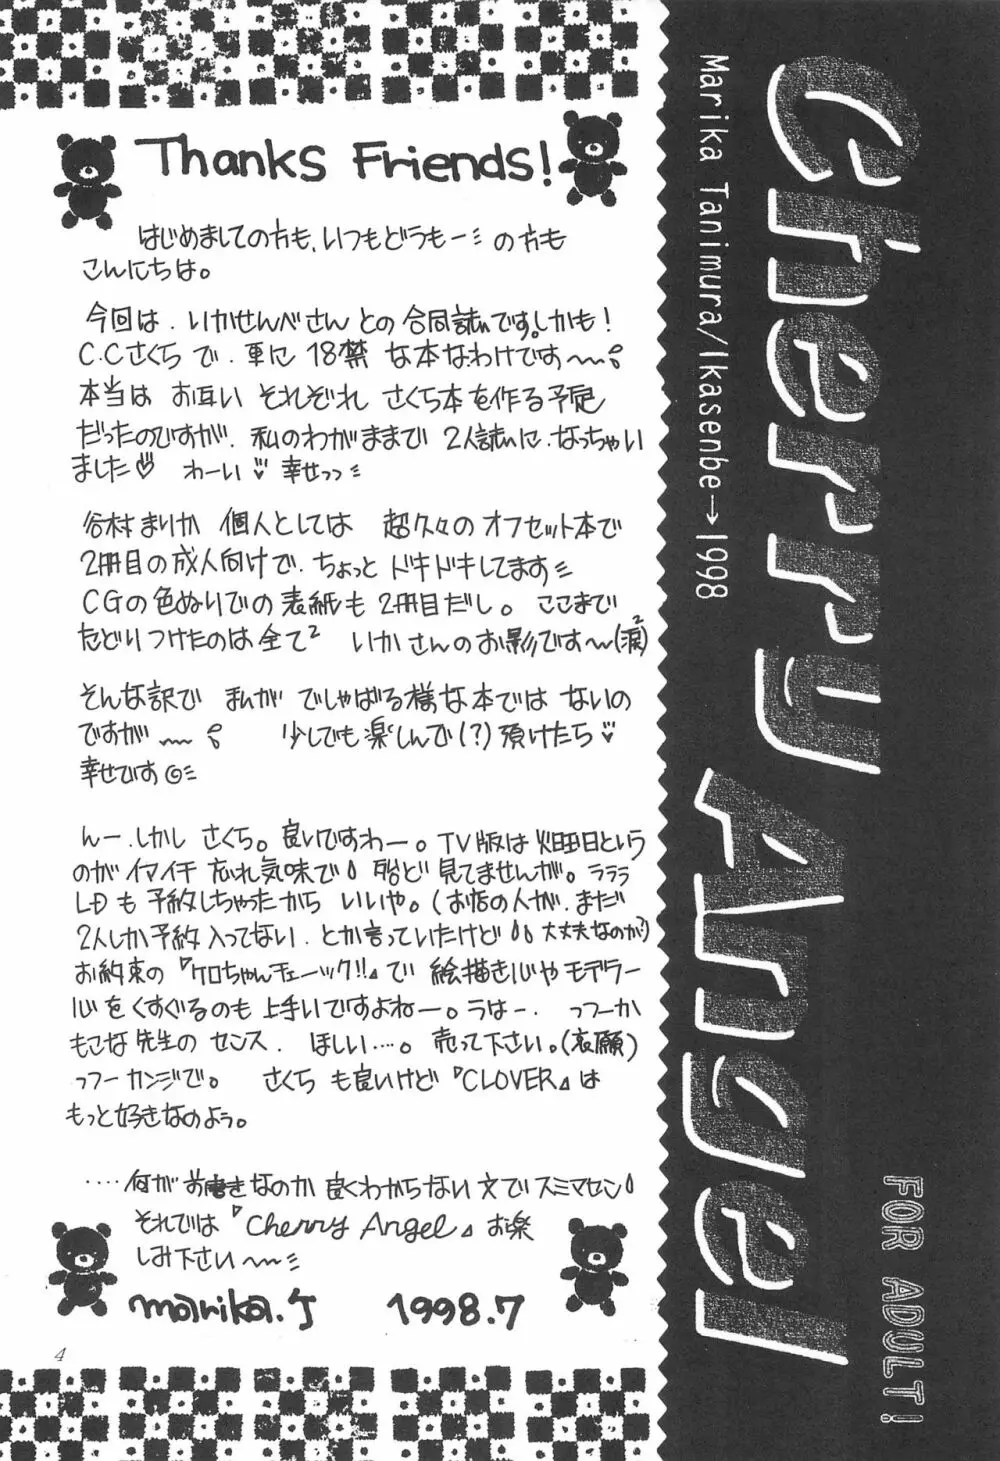 Thanks Friends!
はじめましての方も、いつもどうもーミ の方も
こんにちは。
今回は、いかせんべさんとの合同誌です。しかも!
C.Cさくらで、更に 18禁 な本なわけです〜
本当は お互い それぞれ さくら本を作る予定
だったのですが、私のわがままで 2人誌に、なっちゃい
ました♡ わーい♡ 幸せっっ
谷村まりか 個人としては 超久々のオフセット本で
2冊目の成人向けで、ちょっと ドキドキしてます
CGの色ぬりでの表紙も 2冊目だし。 ここまで
たどりつけたのは全て² いかさんのお影です〜(涙²)
そんな訳で まんが でしゃばる様な本では ないの
ですが〜 少しでも楽しんで(?)頂けたら♡
幸せです◎
んー、しかし さくら。良いですわー。TV版は火曜日という
のがイマイチ 忘れ気味で 殆ど 見てませんが。ううう
LDも予約しちゃったから いいや。(お店の人が、まだ
2人しか予約 入ってない、とか言っていたけど 大丈夫なのか?)
お約束の『ケロちゃんチェーック!!』で 絵描き心や モデラー
心をくすぐるのも 上手いですよねー。うはー、 っつーか
もこな先生の センス、 ほしい…。 売って下さい。(哀願)
っつーカンジで。 さくら も良いけど『CLOVER』は
もっと好きなのよう。
‥‥何が お書きなのか 良くわからない 文で スミマセン
それでは『Cherry Angel』お楽
しみ下さい〜
marika.T 1998.7
4
Cherry Angel
Marika Tanimura/Ikasenbe→1998
FOR ADULT!